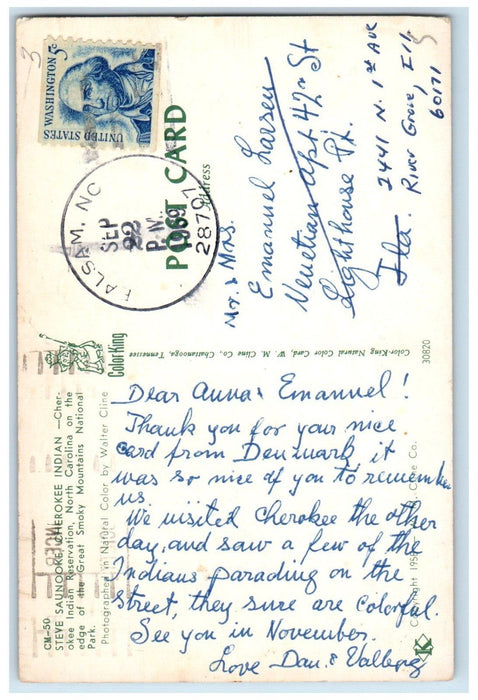 3
WASHINGTON 5c
UNITED STATES
POST CARD
Address
BALSAM, NC
SEP
22
P.M.
1969
28707
Mr. & Mrs.
Emanuel Larsen
Venetian Apt 42n St
Lighthouse Pt.
Fla.
2441 N. 1st Ave
River Grove, Ill
60171
5
CM-50
STEVE SAUNOOKE, CHEROKEE INDIAN—Cher-
okee Indian Reservation, North Carolina on the
edge of the Great Smoky Mountains National
Park.
Photographed in Natural Color by Walter Cline
ColorKing
Color-King Natural Color Card, W. M. Cline Co., Chattanooga, Tennessee
30820
Dear Anna & Emanuel!
Thank you for your nice
card from Denmark it
was so nice of you to remember
us.
We visited Cherokee the other
day, and saw a few of the
Indians parading on the
street, they sure are colorful.
See you in November.
Love Dan & Valborg
Copyright 195 Cline Co.
K